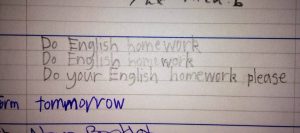 Do English homework
Do English homework
Do your English homework please
tommorrow